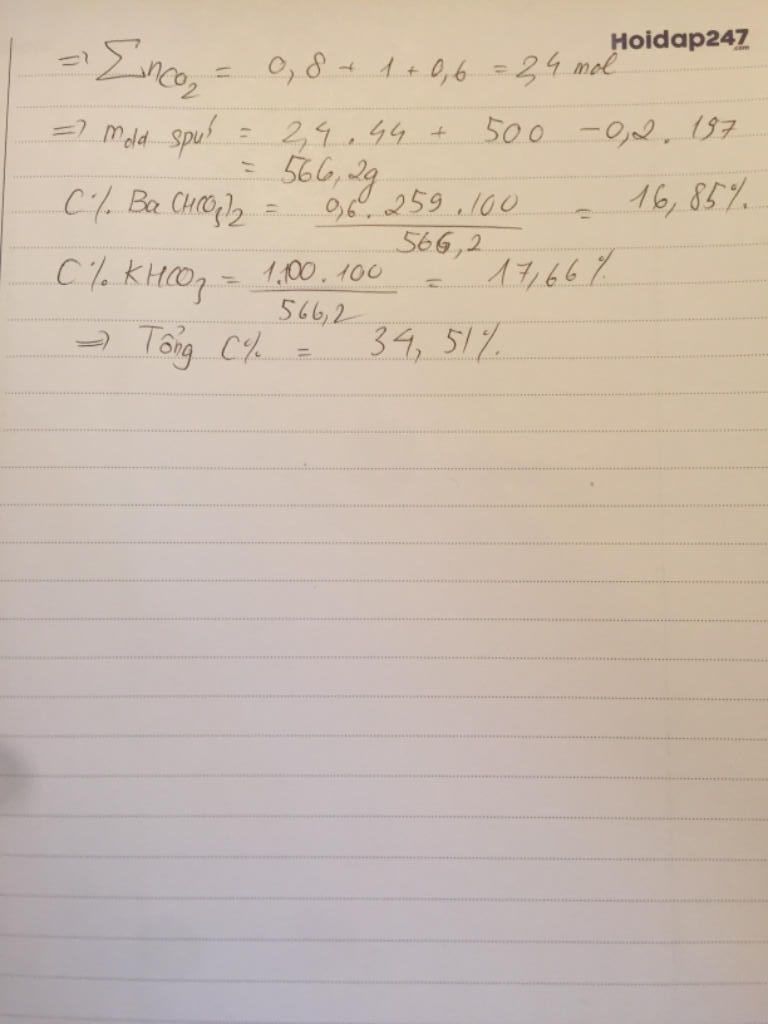 Hoidap247
.com
=> ∑nCO2 = 0,8 + 1 + 0,6 = 2,4 mol
=> mdd spư = 2,4 . 44 + 500 - 0,2 . 197
= 566,2g
C% Ba(HCO3)2 = 0,6 . 259 . 100 / 566,2 = 16,85%
C% KHCO3 = 1.100.100 / 566,2 = 17,66%
=> Tổng C% = 34,51%